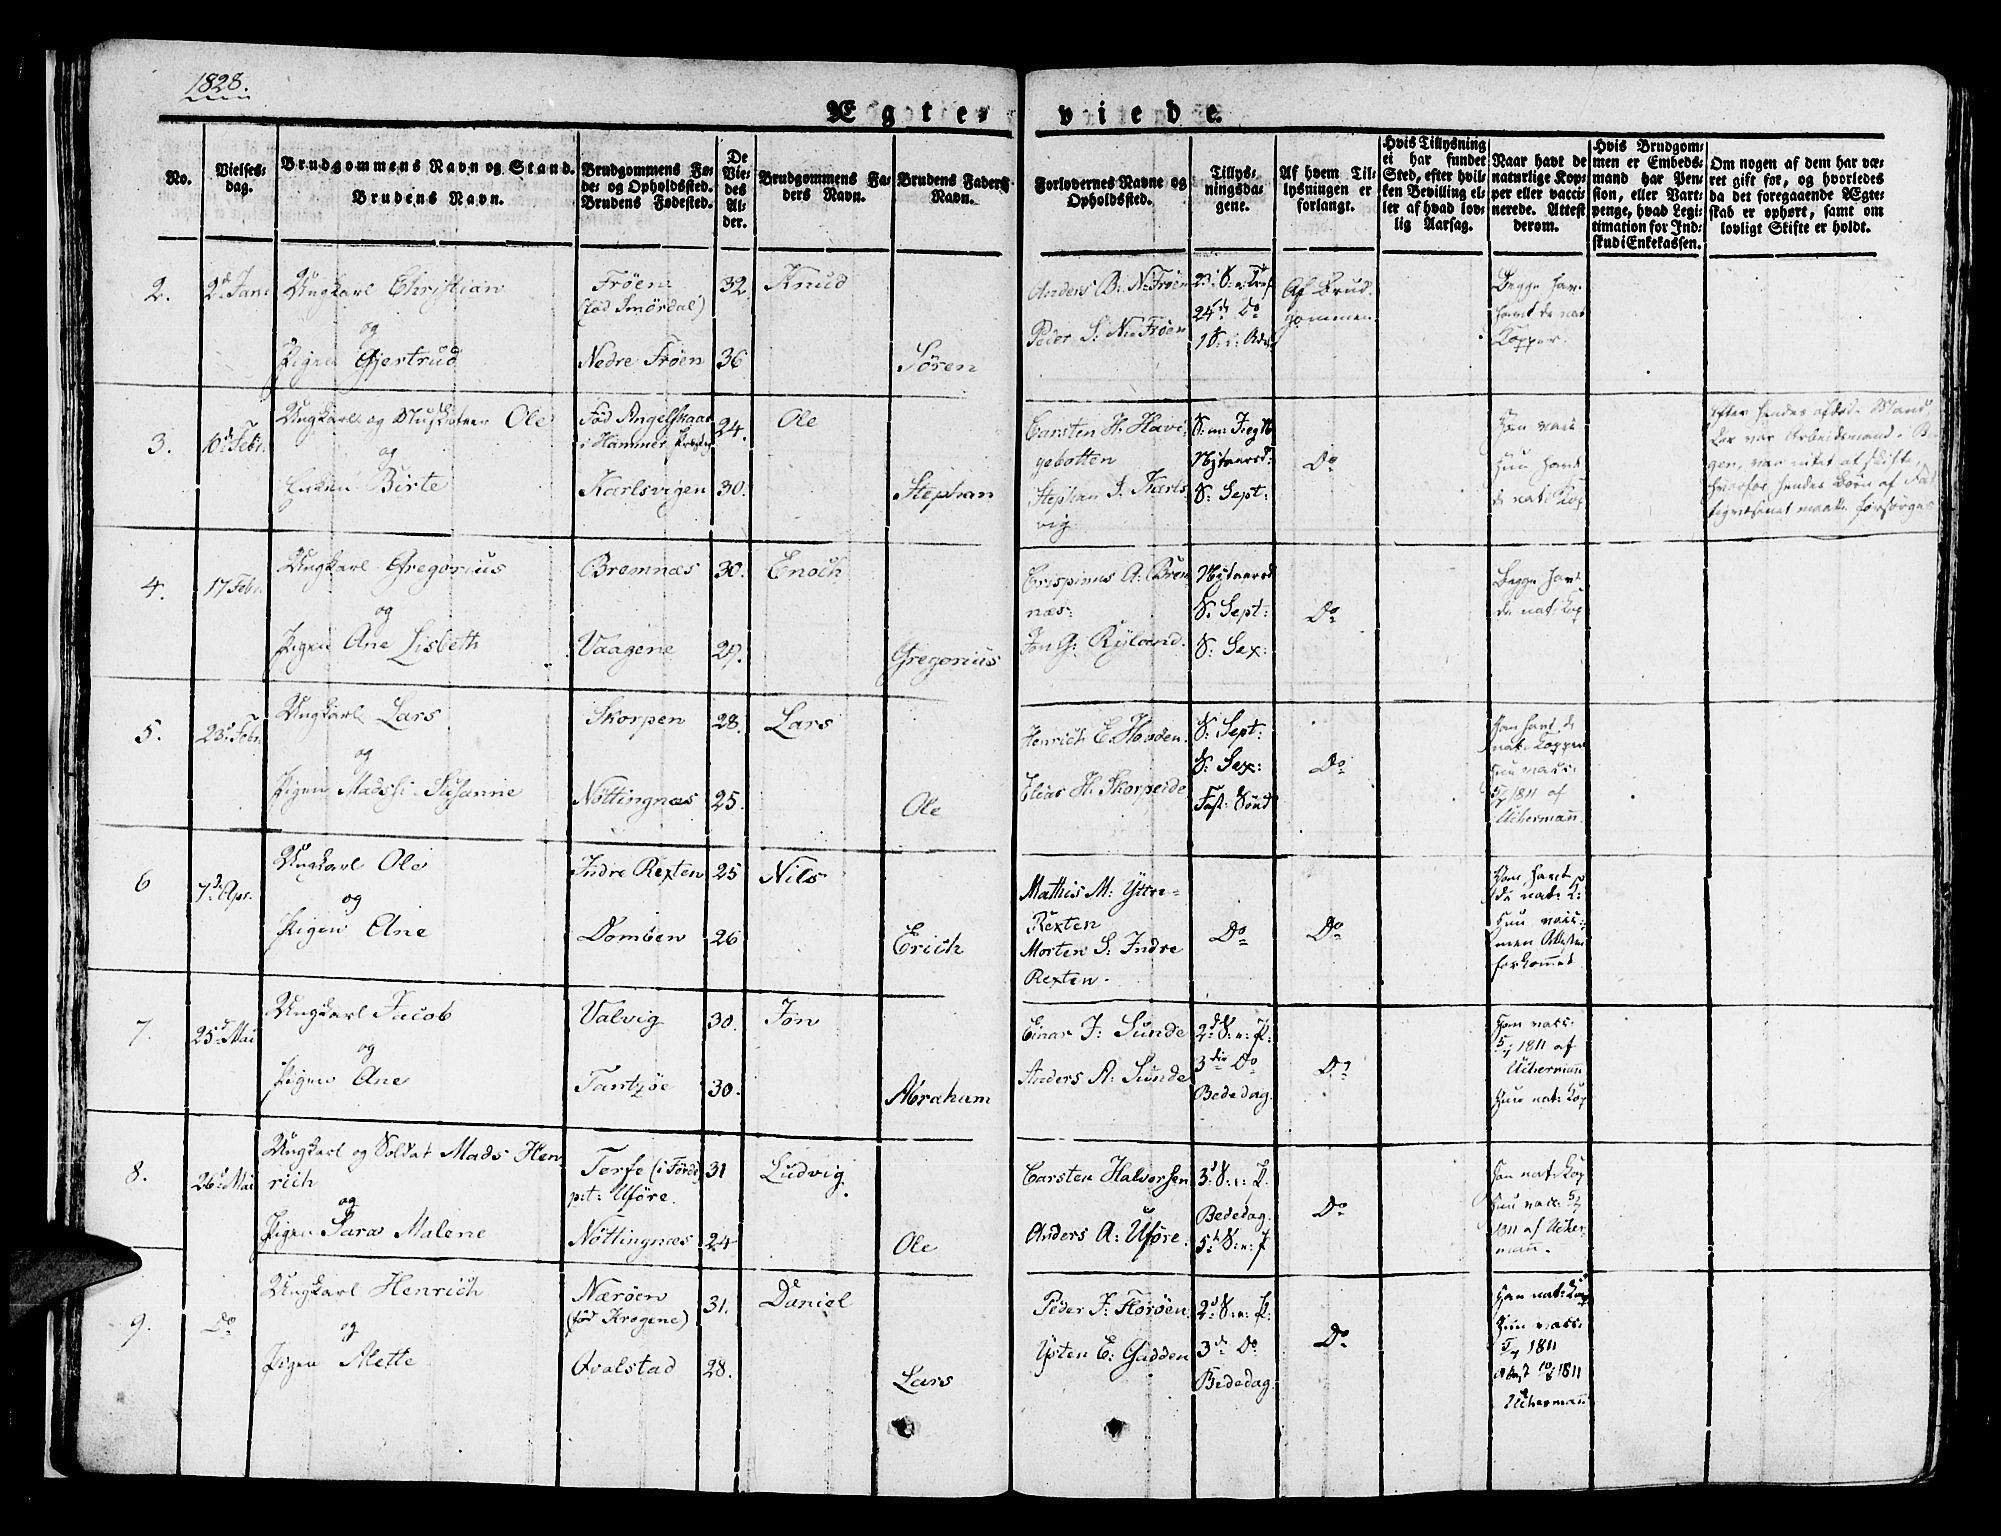 1828.
Ægte-
viede.
No.
Vielses-
dag.
Brudgommens Navn og Stand.
Brudens Navn.
Brudgommens Fø-
de- og Opholdssted.
Brudens Fødested.
De
Vie-
des
Al-
der.
Brudgommens Fa-
ders Navn.
Brudens Faders
Navn.
Forlovernes Navne og
Opholdssted.
Tillys-
ningsda-
gene.
Af hvem Til-
lysningen er
forlangt.
Hvis Tillysning
ei har fundet
Sted, efter hvil-
ken Bevilling el-
ler af hvad lov-
lig Aarsag.
Naar havt de
naturlige Kop-
per eller vacci-
nerede. Attest
derom.
Hvis Brudgom-
men er Embeds-
mand har Pen-
sion, eller Vart-
penge, hvad Legi-
timation for Ind-
skud i Enkekassen.
Om nogen af dem har væ-
ret gift før, og hvorledes
da det foregaaende Ægte-
skab er ophørt, samt om
lovligt Skifte er holdt.
2. 2d Jan: Ungkarl Christian
og
Pigen Gjertrud
Frøen
(fød Smördal)
Nedre Frøen
32.
36
Knud
Søren
Anders B: N: Frøen
Peder S: N: Frøen
24de Do
Af Brud-
gommen.
Begge hav-
havt de nat
Kopper.
3. 10d Febr. Ungkarl og Musketeer Ole
og
Enken Birte
Fød Angelskaar
i Hammer Præstg
Karlsvigen
24.
30.
Ole
Stephan
Carsten H: Havi-
gebotten
Stephan J. Karls-
vig.
Nytaarsd:
S: Sept:
Do
Han vacc
Hun havt
de nat: Kop
Efter hendes afdøde Mand,
der var Arbeidsmand i B
gen, var intet at skifte,
hvorfor hendes Børn af Fat
tigvæsenet maatte forsørges
4. 17 Febr. Ungkarl Gregorius
og
Pigen Ane Lisbeth
Bremnæs
Vaagene
30.
29.
Enoch
Gregorius
Crispinus A: Brem
næs:
Jon G: Ryland.
Nytaarsd
S: Sept:
S: Sex:
Do
Begge havt
de nat: Kop
5. 23d Febr. Ungkarl Lars
og
Pigen Madssi Susanne
Skorpen
Nöttingnæs
28.
25.
Lars
Ole
Henrich E. Hovden.
Elias H. Skorpeide
S: Sept:
S: Sex:
Fast: Sönd
Do
Han havt de
nat: Kopper
Hun vacc:
5/7 1811 af
Uchermañ.
6 7de Apr. Ungkarl Ole
og
Pigen Ane
Indre Rexten
Domben
25
26
Nils
Erich
Mathis M: Yttre-
Rexten
Morten S: Indre
Rexten.
Do
Do
Han havt
de nat: K:
Hun vacc:
men Attesten
forkommet
7. 25d Mai Ungkarl Jacob
og
Pigen Ane
Valvig
Tantzöe
30.
30.
Jon
Abraham
Einar J: Sunde
Anders A: Sunde
2d S: e: P:
3die Do
Bededag.
Do
Han vacc:
5/7 1811 af
Uchermañ
Hun nat: Kop
8. 26d Mai Ungkarl og Soldat Mads Hen-
rich
og
Pigen Sara Malene
Terfe (i Førde)
pt: Uføre.
Nöttingnæs
31
24
Ludvig.
Ole
Carsten Halvorsen
Anders A: Uføre.
3d S: e: P.
Bededag.
5t S: e: P
Do
Han nat: Kop
Hun vacc: 5/7
1811 af Ucher-
mañ.
9. Do Ungkarl Henrich
og
Pigen Mette
Nærøen
(fød Krogene)
Qvalstad
31.
28.
Daniel
Lars
Peder J: Florøen
Ysten E: Gadden
2d S: e: P.
3de Do
Bededag.
Do
Han nat: Kop
Hun vacc:
5/7 1811
Uchermañ